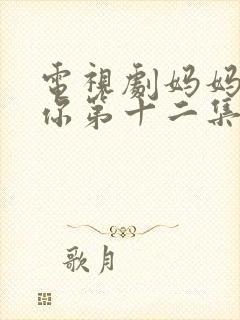 電視劇妈妈
你第十二集
歌月